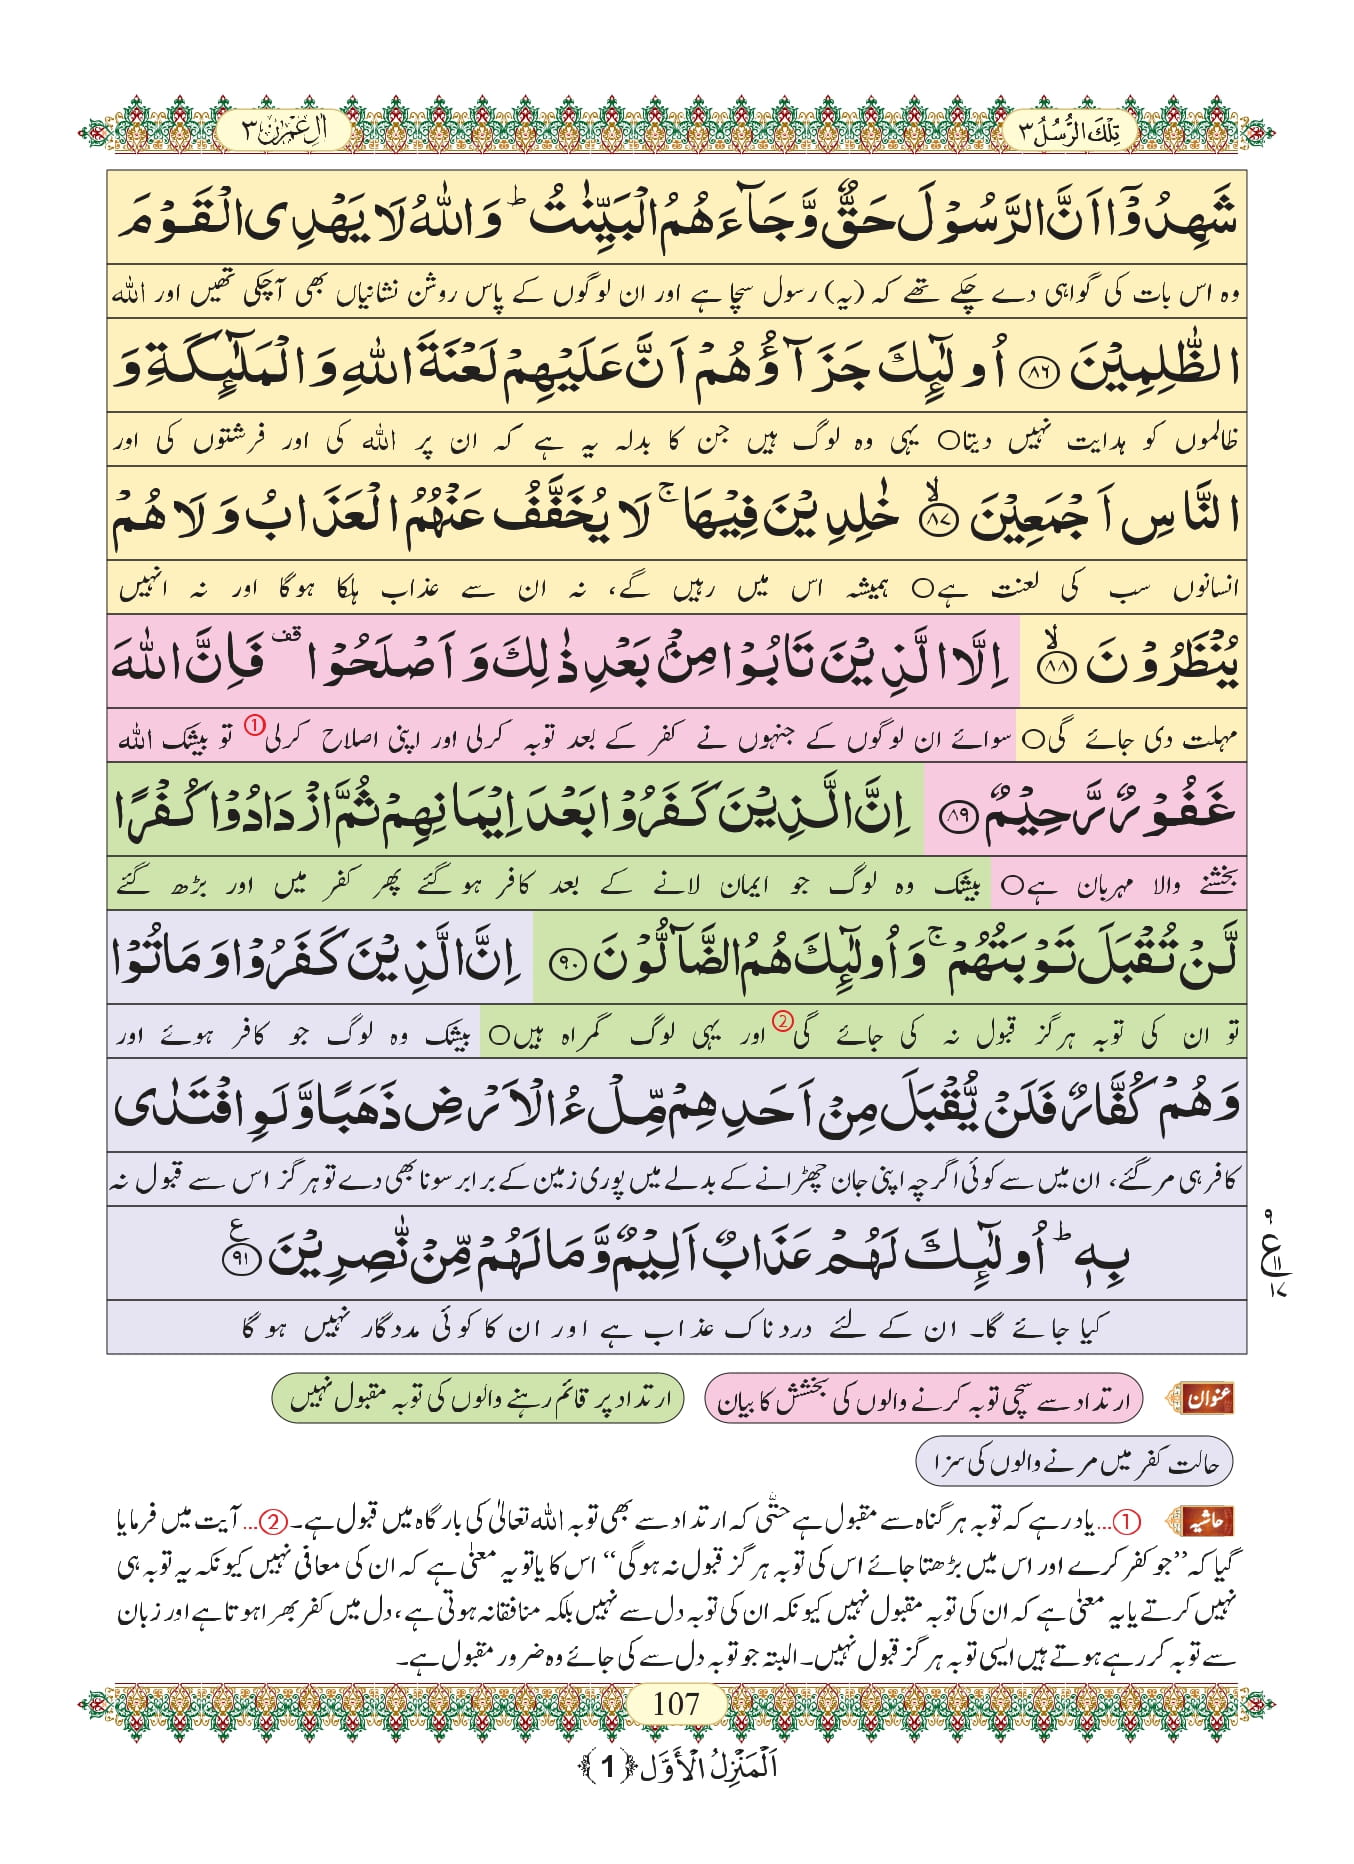 تِلْكَ الرُّسُلُ ٣
اٰلِ عِمْرٰن ٣
شَهِدُوْۤا اَنَّ الرَّسُوْلَ حَقٌّ وَّ جَآءَهُمُ الْبَیِّنٰتُؕ وَ اللّٰهُ لَا یَهْدِی الْقَوْمَ
وہ اس بات کی گواہی دے چکے تھے کہ (یہ) رسول سچا ہے اور ان لوگوں کے پاس روشن نشانیاں بھی آچکی تھیں اور اللہ
الظّٰلِمِیْنَ ﴿۸۶﴾ اُولٰٓىِٕكَ جَزَآؤُهُمْ اَنَّ عَلَیْهِمْ لَعْنَةَ اللّٰهِ وَ الْمَلٰٓىِٕكَةِ وَ
ظالموں کو ہدایت نہیں دیتا○ یہی وہ لوگ ہیں جن کا بدلہ یہ ہے کہ ان پر اللہ کی اور فرشتوں کی اور
النَّاسِ اَجْمَعِیْنَ ﴿ۙ۸۷﴾ خٰلِدِیْنَ فِیْهَاۚ لَا یُخَفَّفُ عَنْهُمُ الْعَذَابُ وَ لَا هُمْ
انسانوں سب کی لعنت ہے○ ہمیشہ اس میں رہیں گے، نہ ان سے عذاب ہلکا ہوگا اور نہ انہیں
یُنْظَرُوْنَ ﴿ۙ۸۸﴾ اِلَّا الَّذِیْنَ تَابُوْا مِنْۢ بَعْدِ ذٰلِكَ وَ اَصْلَحُوْا قف فَاِنَّ اللّٰهَ
مہلت دی جائے گی○ سوائے ان لوگوں کے جنہوں نے کفر کے بعد توبہ کرلی اور اپنی اصلاح کرلی① تو بیشک اللہ
غَفُوْرٌ رَّحِیْمٌ ﴿۸۹﴾ اِنَّ الَّذِیْنَ كَفَرُوْا بَعْدَ اِیْمَانِهِمْ ثُمَّ ازْدَادُوْا كُفْرًا
بخشنے والا مہربان ہے○ بیشک وہ لوگ جو ایمان لانے کے بعد کافر ہو گئے پھر کفر میں اور بڑھ گئے
لَّنْ تُقْبَلَ تَوْبَتُهُمْۚ وَ اُولٰٓىِٕكَ هُمُ الضَّآلُّوْنَ ﴿۹۰﴾ اِنَّ الَّذِیْنَ كَفَرُوْا وَ مَاتُوْا
تو ان کی توبہ ہرگز قبول نہ کی جائے گی② اور یہی لوگ گمراہ ہیں○ بیشک وہ لوگ جو کافر ہوئے اور
وَ هُمْ كُفَّارٌ فَلَنْ یُّقْبَلَ مِنْ اَحَدِهِمْ مِّلْءُ الْاَرْضِ ذَهَبًا وَّ لَوِ افْتَدٰى
کافر ہی مر گئے، ان میں سے کوئی اگرچہ اپنی جان چھڑانے کے بدلے میں پوری زمین کے برابر سونا بھی دے تو ہرگز اس سے قبول نہ
بِهٖؕ اُولٰٓىِٕكَ لَهُمْ عَذَابٌ اَلِیْمٌ وَّ مَا لَهُمْ مِّنْ نّٰصِرِیْنَ ﴿۹۱﴾ ع
۹
ع ۱۱
۱۷
کیا جائے گا۔ ان کے لئے دردناک عذاب ہے اور ان کا کوئی مددگار نہیں ہو گا
عنوان ارتداد سے سچی توبہ کرنے والوں کی بخشش کا بیان ارتداد پر قائم رہنے والوں کی توبہ مقبول نہیں
حالت کفر میں مرنے والوں کی سزا
حاشیہ ①... یاد رہے کہ توبہ ہر گناہ سے مقبول ہے حتّٰی کہ ارتداد سے بھی توبہ اللہ تعالیٰ کی بارگاہ میں قبول ہے۔ ②... آیت میں فرمایا
گیا کہ ”جو کفر کرے اور اس میں بڑھتا جائے اس کی توبہ ہرگز قبول نہ ہوگی“ اس کا یا تو یہ معنٰی ہے کہ ان کی معافی نہیں کیونکہ یہ توبہ ہی
نہیں کرتے یا یہ معنٰی ہے کہ ان کی توبہ مقبول نہیں کیونکہ ان کی توبہ دل سے نہیں بلکہ منافقانہ ہوتی ہے، دل میں کفر بھرا ہوتا ہے اور زبان
سے توبہ کر رہے ہوتے ہیں ایسی توبہ ہرگز قبول نہیں۔ البتہ جو توبہ دل سے کی جائے وہ ضرور مقبول ہے۔
107
اَلْمَنْزِلُ الْأَوَّل ﴿1﴾